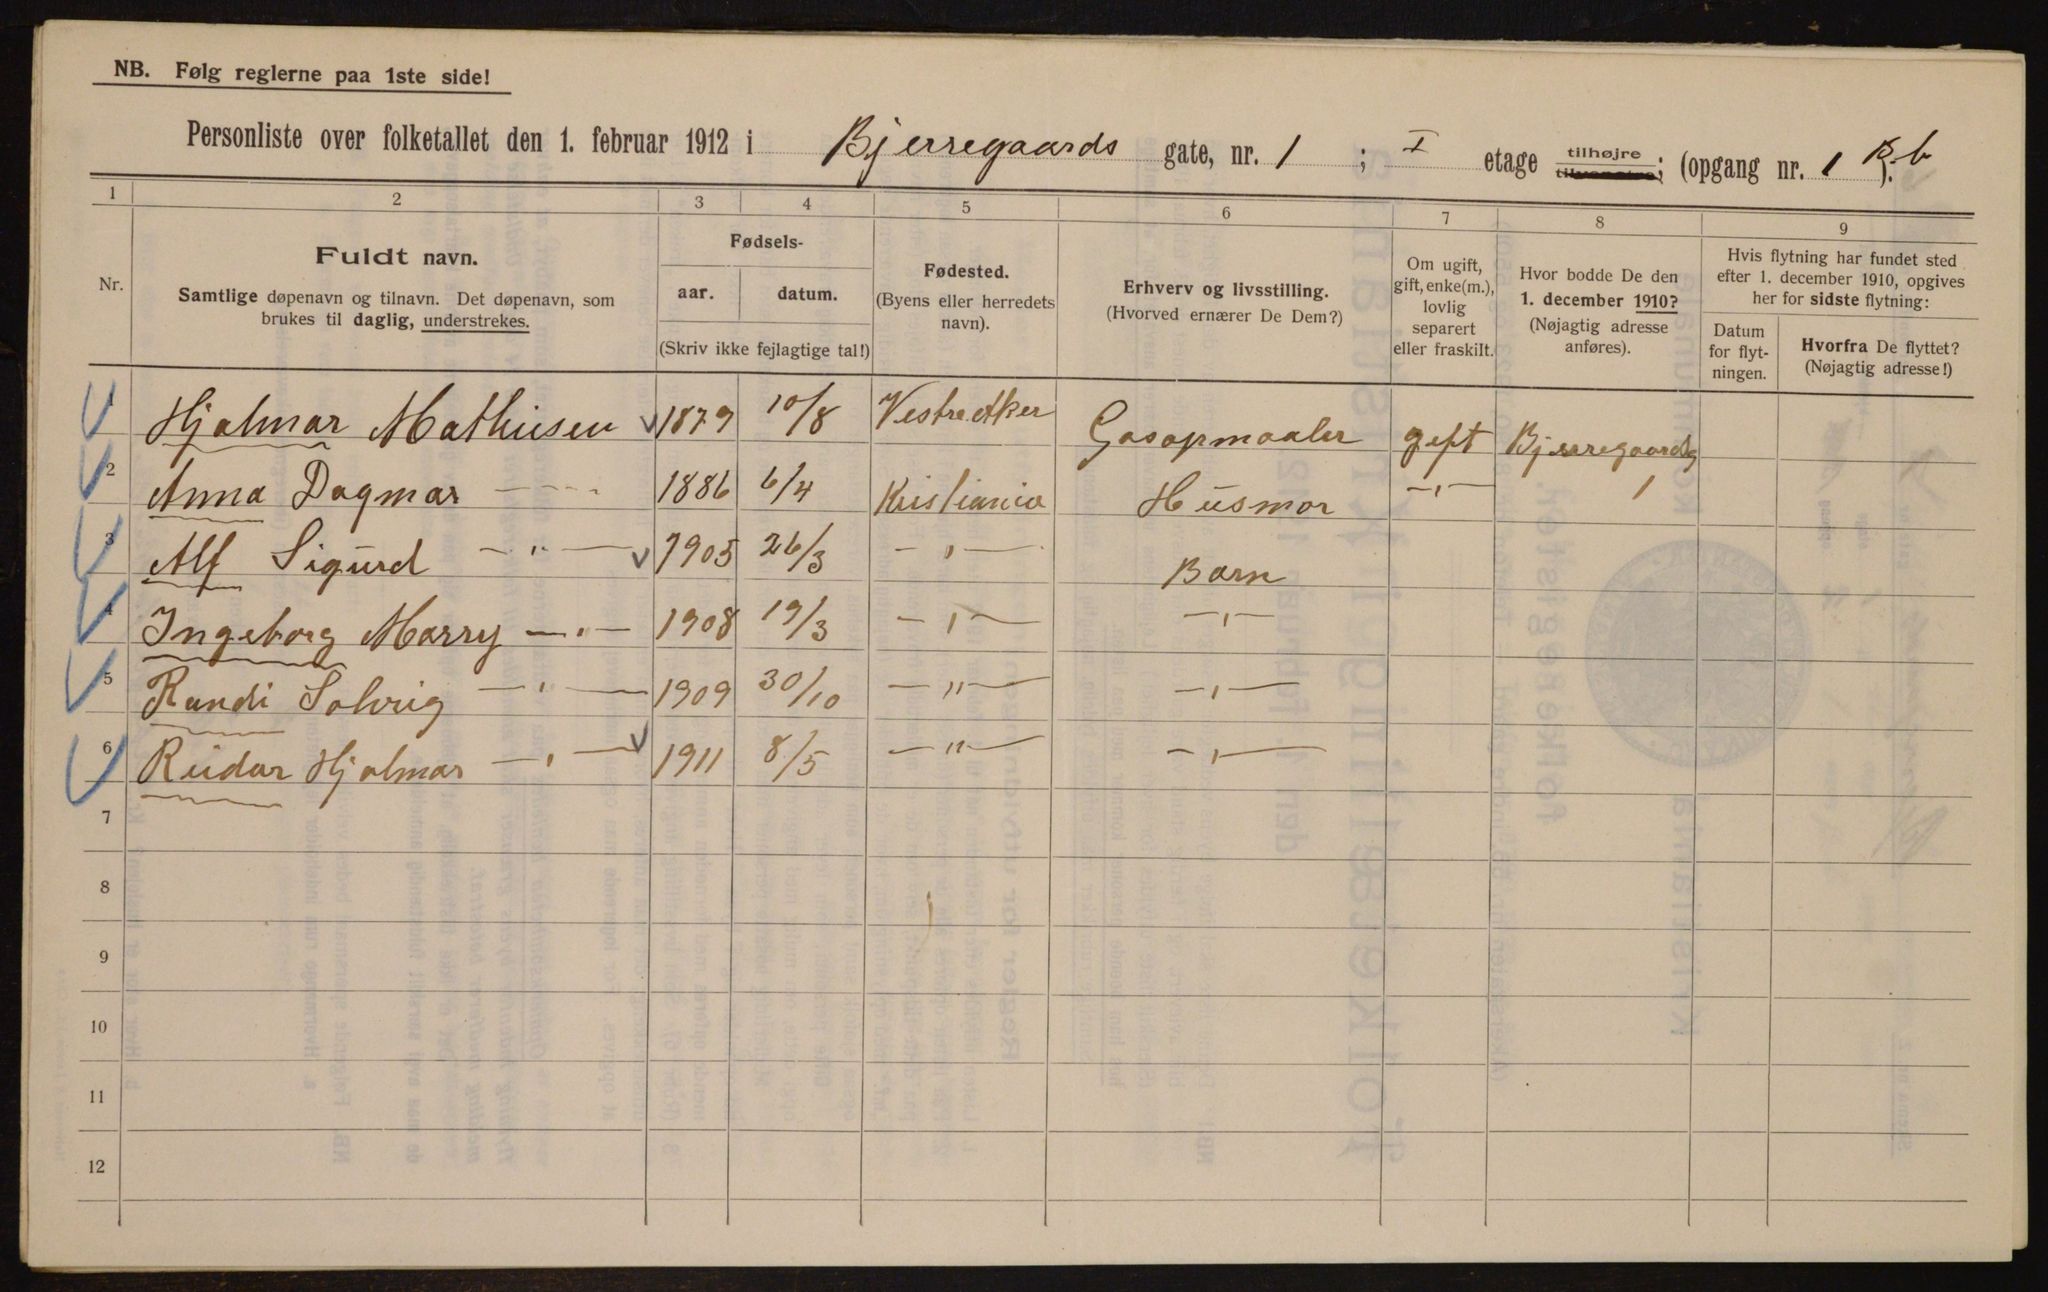 NB. Følg reglerne paa 1ste side!
Personliste over folketallet den 1. februar 1912 i Bjerregaards gate, nr. 1 ; I etage tilhøjre tilvenstre; (opgang nr. 1 B.b ).
1 2 3 4 5 6 7 8 9
Nr.
Fuldt navn.
Samtlige døpenavn og tilnavn. Det døpenavn, som
brukes til daglig, understrekes.
Fødsels-
aar. datum.
(Skriv ikke fejlagtige tal!)
Fødested.
(Byens eller herredets
navn).
Erhverv og livsstilling.
(Hvorved ernærer De Dem?)
Om ugift,
gift, enke(m.),
lovlig
separert
eller fraskilt.
Hvor bodde De den
1. december 1910?
(Nøjagtig adresse
anføres).
Hvis flytning har fundet sted
efter 1. december 1910, opgives
her for sidste flytning:
Datum
for flyt-
ningen.
Hvorfra De flyttet?
(Nøjagtig adresse!)
1 Hjalmar Mathiesen 1879 10/8 Vestre Aker Gasopmaaler gift Bjerregaardsg
2 Anna Dagmar — " — 1886 6/4 Kristiania Husmor — " — 1
3 Alf Sigurd — " — 1905 26/3 — " — Barn
4 Ingeborg Marry — " — 1908 19/3 — " — — " —
5 Randi Solvig — " — 1909 30/10 — " — — " —
6 Reidar Hjalmar — " — 1911 8/5 — " — — " —
7
8
9
10
11
12